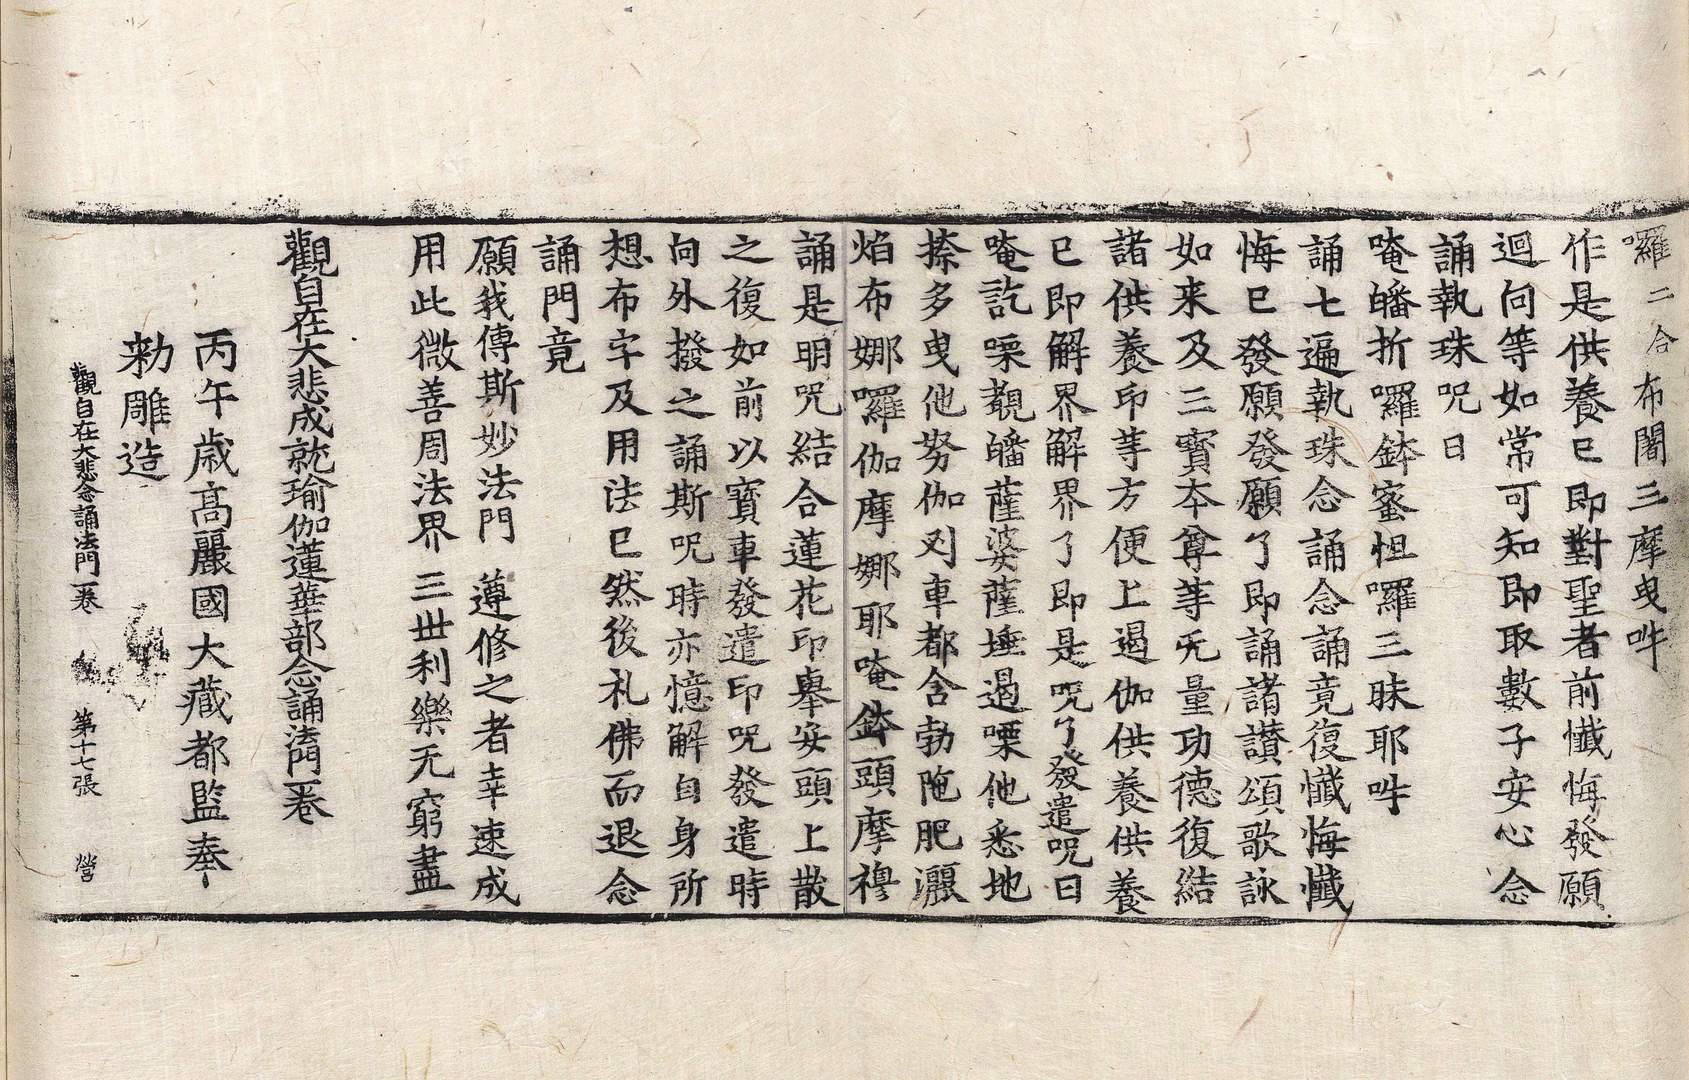 囉二合布闍三摩曳吽
作是供養已即對聖者前懺悔發願
迴向等如常可知即取數子安心念
誦執珠呪曰
唵皤折囉鉢蜜怛囉三昧耶吽
誦七遍執珠念誦念誦竟復懺悔懺
悔已發願發願了即誦諸讃頌歌詠
如来及三寶本尊等无量功德復結
諸供養印等方便上遏伽供養供養
已即解界解界了即是呪了發遣呪曰
唵訖㗚覩皤薩婆薩埵遏㗚他悉地
捺多曳他努伽刘車都含勃陁肥灑
焰布娜囉伽摩娜耶唵鉢頭摩穆
誦是明呪結合蓮花印舉安頭上散
之復如前以寶車發遣印呪發遣時
向外撥之誦斯呪時亦憶解自身所
想布字及用法已然後礼佛而退念
誦門竟
願我傳斯妙法門 遵修之者幸速成
用此微善周法界 三世利樂无窮盡
觀自在大悲成就瑜伽蓮華部念誦法門一卷
丙午歲高麗國大藏都監奉
勅雕造
觀自在大悲念誦法門一卷 第十七張 營